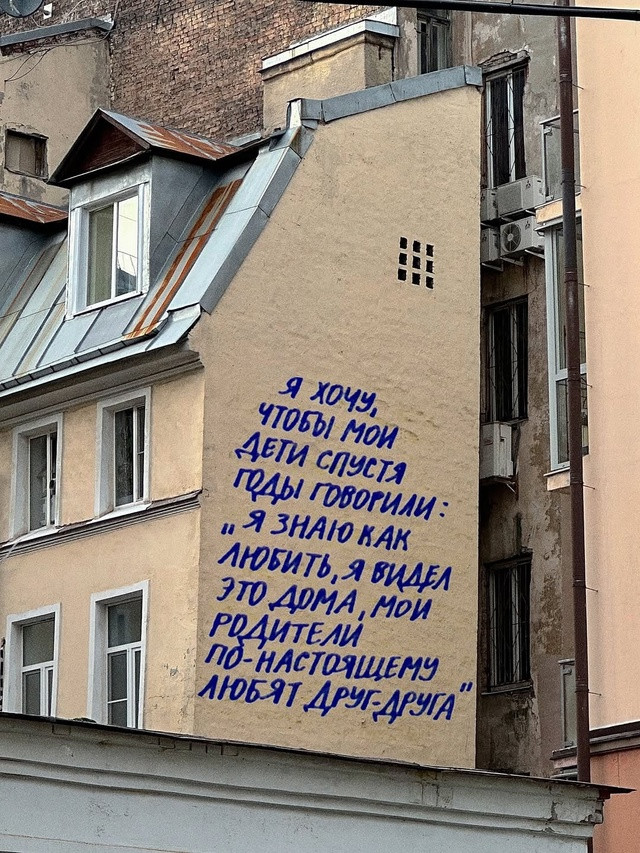 Я ХОЧУ,
ЧТОБЫ МОИ
ДЕТИ СПУСТЯ
ГОДЫ ГОВОРИЛИ:
„Я ЗНАЮ КАК
ЛЮБИТЬ, Я ВИДЕЛ
ЭТО ДОМА, МОИ
РОДИТЕЛИ
ПО-НАСТОЯЩЕМУ
ЛЮБЯТ ДРУГ-ДРУГА"